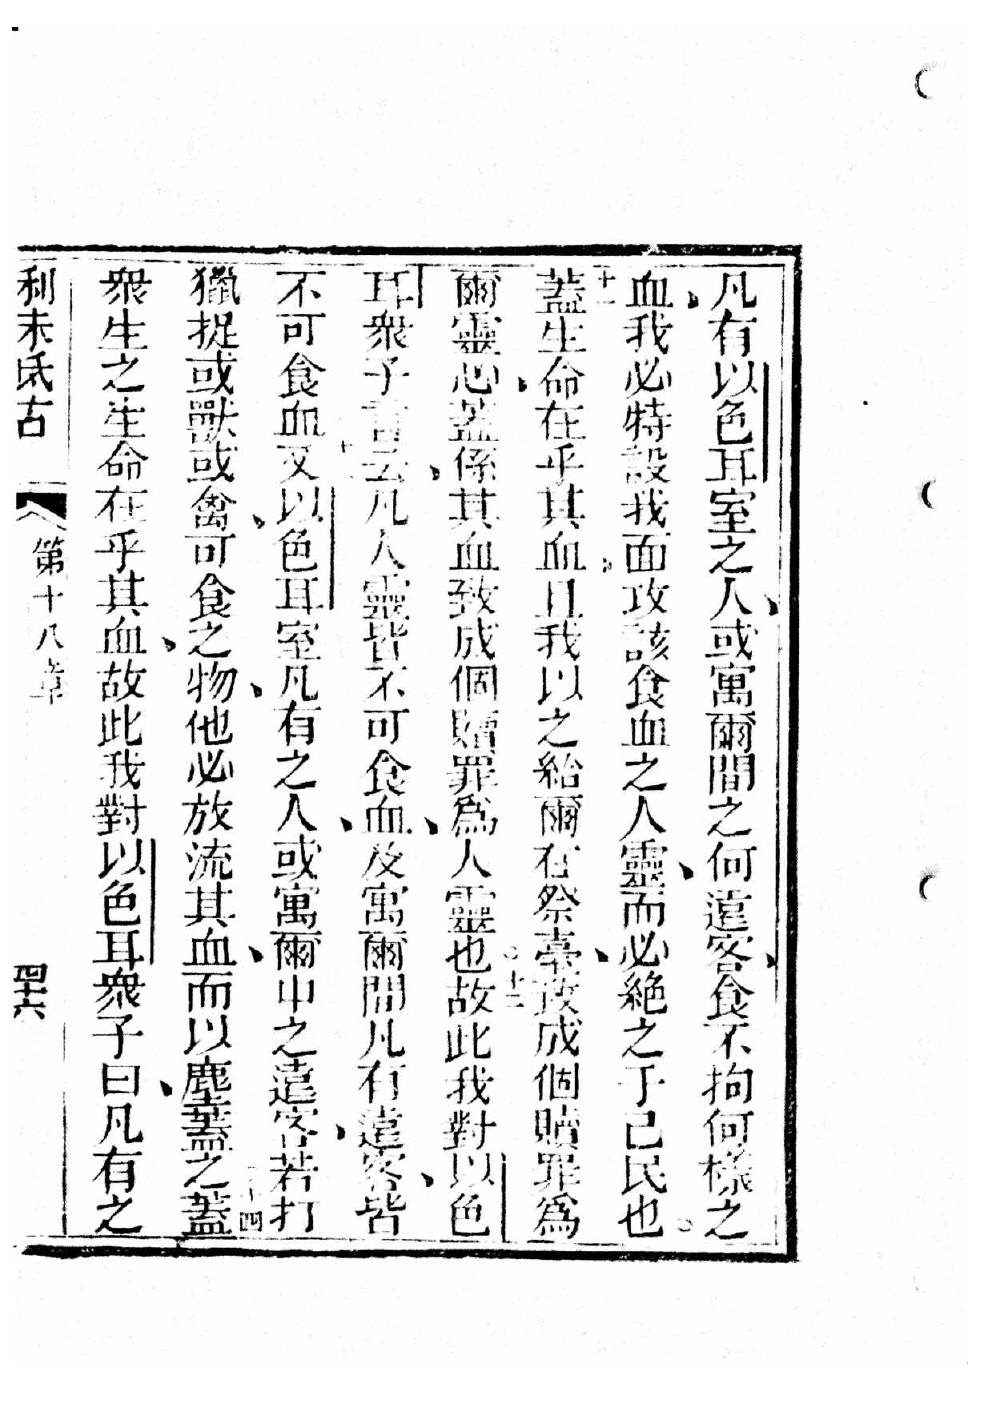 凡有以色耳室之人、或寓爾間之何遠客、食不拘何樣之
血、我必特設我面攻該食血之人靈、而必絕之于己民也。
十一蓋生命在乎其血、且我以之給爾在祭臺、致成個贖罪爲
爾靈心、蓋係其血致成個贖罪爲人靈也。十二故此我對以色
耳衆子言云、凡人靈皆不可食血、及寓爾間凡有遠客、皆
不可食血。又以色耳室凡有之人、或寓爾中之遠客、若打
獵捉或獸或禽、可食之物、他必放流其血、而以塵蓋之。十四蓋
衆生之生命在乎其血、故此我對以色耳衆子曰、凡有之
利未氏古
第十八章
四十六